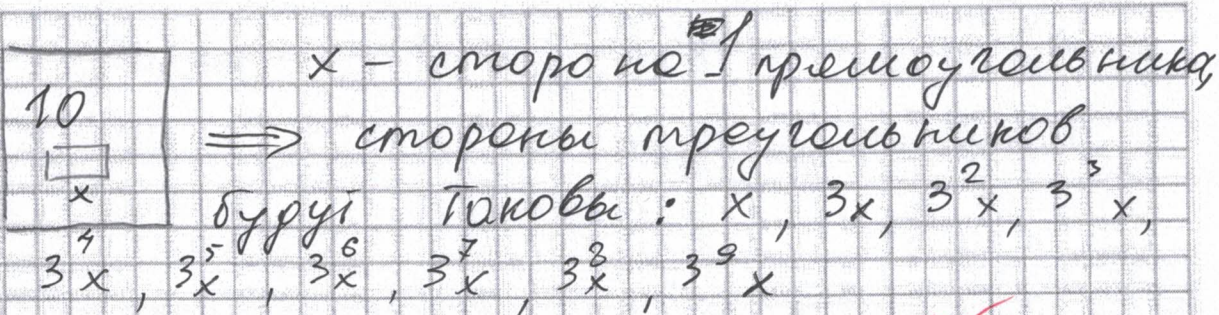 x – сторона 1 прямоугольника,
10
⟹ стороны треугольников
x
будут таковы: x, 3x, 3²x, 3³x,
3⁴x, 3⁵x, 3⁶x, 3⁷x, 3⁸x, 3⁹x